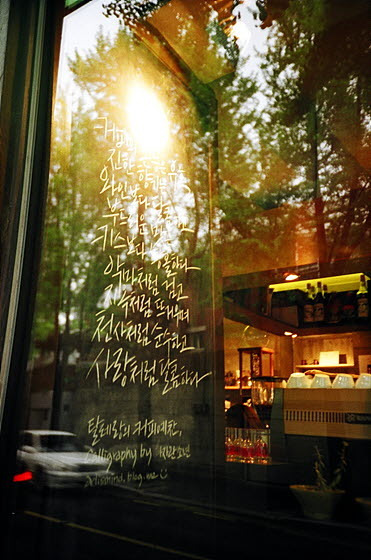 커피
진한
와인보다
부드러운
키스보다
악마처럼 검고
지옥처럼 뜨거우며
천사처럼 순수하고
사랑처럼 달콤하다
탈레랑의 커피예찬,
Calligraphy by